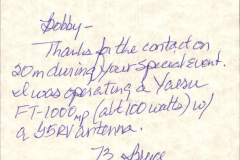 Bobby-
Thanks for the contact on
20m during your Special Event.
I was operating a Yaesu
FT-1000mp (abt 100 watts) w/
a G5RV antenna.
73 Bruce